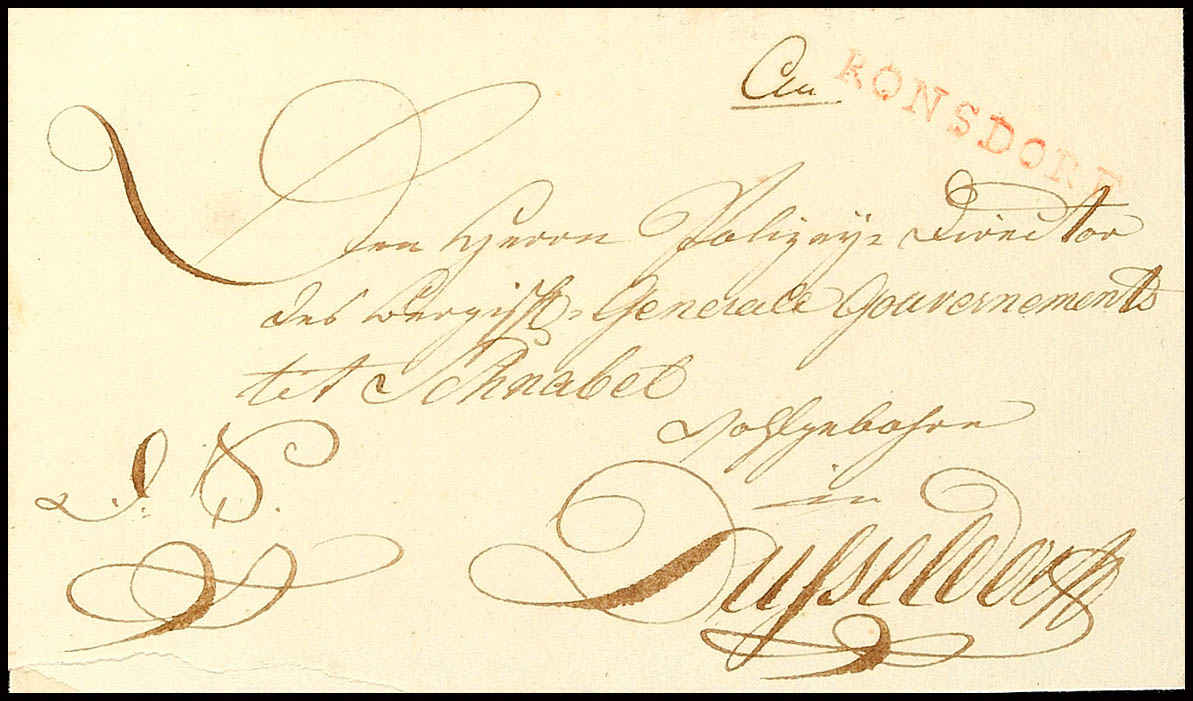 An
RONSDORF
Den Herrn Polizeÿ= Director
des Bergisch= Generale Gouvernements
tit Schnabel
Wohlgebohrn
D. S.
in
Dusseldorff